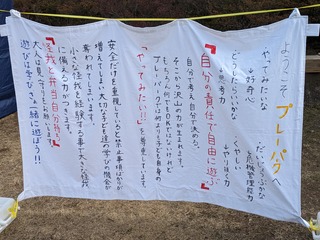 ようこそ プレーパークへ
やってみたいな
↓好奇心
だいじょうぶかな
↓危機管理能力
どうしたらいいかな
↓思考力
くやしい
↓やりぬく力
『自分の責任で自由に遊ぶ』
自分で考え自分で決める。
そこから沢山の力が生まれます。
もちろん何でも自由ではないけれど
プレーパークでは何よりも子ども自身の
「やってみたい!!」を尊重しています。
安全だけを重視していると禁止事項ばかりが
増えてしまい大切な子ども達の学びの機会が
奪われてしまいます。
小さな怪我を経験する事で大きな怪我
に備える力がつきます。
『怪我と弁当自分持ち』
大人は見守りをお願いします。
遊びは学び!さぁ一緒に遊ぼう!!